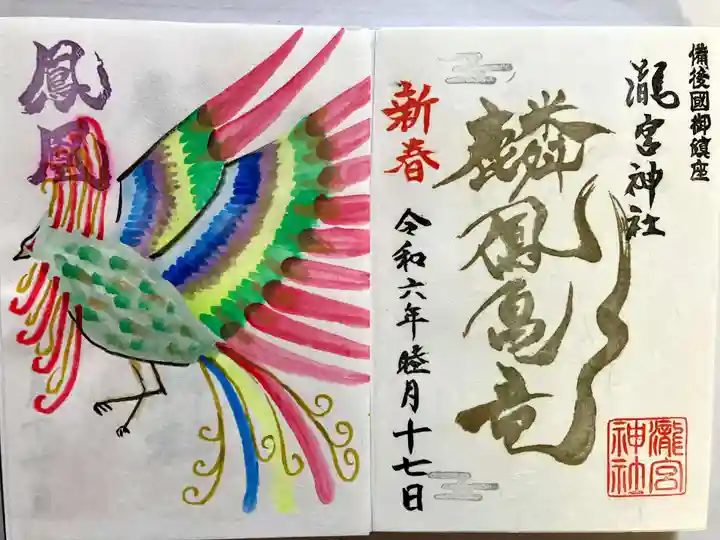 備後國御鎮座
瀧宮神社
麟鳳亀竜
新春
令和六年睦月十七日
瀧宮
神社
鳳凰